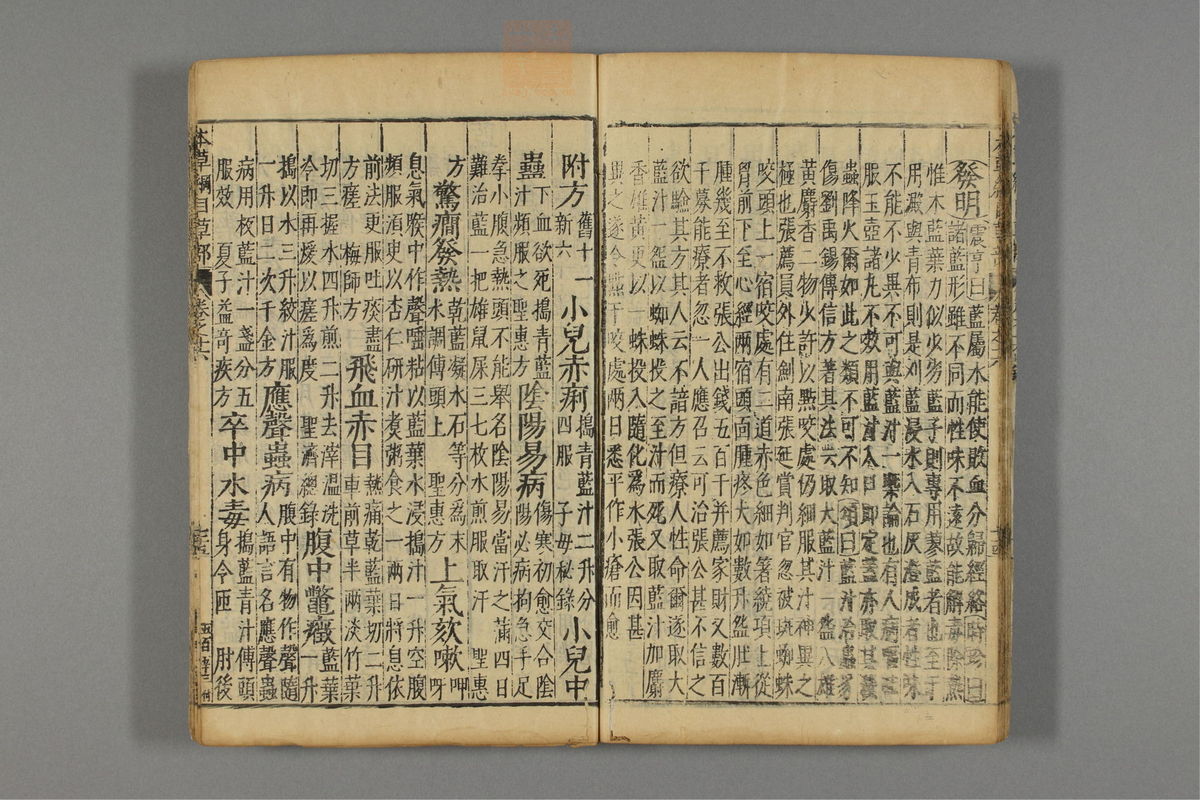 發明震亨曰藍屬水能使敗血分歸經絡時珍曰
諸藍形雖不同而性味不遠故能解毒除熱
惟木藍葉力似少劣藍子則專用蓼藍者也至于
用澱與青布則是刈藍浸水入石灰澄成者性味
不能不少異不可與藍汁一槩論也有人病嘔吐
服玉壺諸丸不效用藍汁入口即定蓋亦取其殺
蟲降火爾如此之類不可不知頌曰藍汁治蟲豸
傷劉禹錫傳信方著其法云取大藍汁一盌入雄
黃麝香二物少許以點咬處仍細服其汁神異之
極也張薦員外住劍南張延賞判官忽被斑蜘蛛
咬頭上一宿咬處有二道赤色細如箸繞項上從
胷前下至心經兩宿頭面腫疼大如數升盌肚漸
腫幾至不救張公出錢五百千并薦家財又數百
千募能療者忽一人應召云可治張公甚不信之
欲驗其方其人云不諳方但療人性命爾遂取大
藍汁一盌以蜘蛛投之至汁而死又取藍汁加麝
香雄黃更以一蛛投入隨化爲水張公因甚
異之遂令點于咬處兩日悉平作小瘡而愈
附方舊十一新六小兒赤痢搗青藍汁二升分四服 子母秘錄小兒中
蠱下血欲死搗青藍汁頻服之聖惠方陰陽易病傷寒初愈交合陰陽必病拘急手足
拳小腹急熱頭不能舉名陰陽易當汗之滿四日
難治藍一把雄鼠屎三七枚水煎服取汗 聖惠
方驚癎發熱乾藍凝水石等分爲末水調傅頭上 聖惠方上氣欬嗽呷呀
息氣喉中作聲唾粘以藍葉水浸搗汁一升空腹
頻服須臾以杏仁研汁煑粥食之一兩日將息依
前法更服吐痰盡方瘥 梅師方飛血赤目熱痛乾藍葉切二升車前草半兩淡竹葉
切三握水四升煎二升去滓溫洗
冷即再煖以瘥爲度 聖濟總錄腹中鼈癥藍葉一升
搗以水三升絞汁服一升日二次千金方應聲蟲病腹中有物作聲隨人語言名應聲蟲
病用板藍汁一盞分五服效 夏子益奇疾方卒中水毒搗藍青汁傅頭身令匝 肘後
本草綱目草部
卷之十六